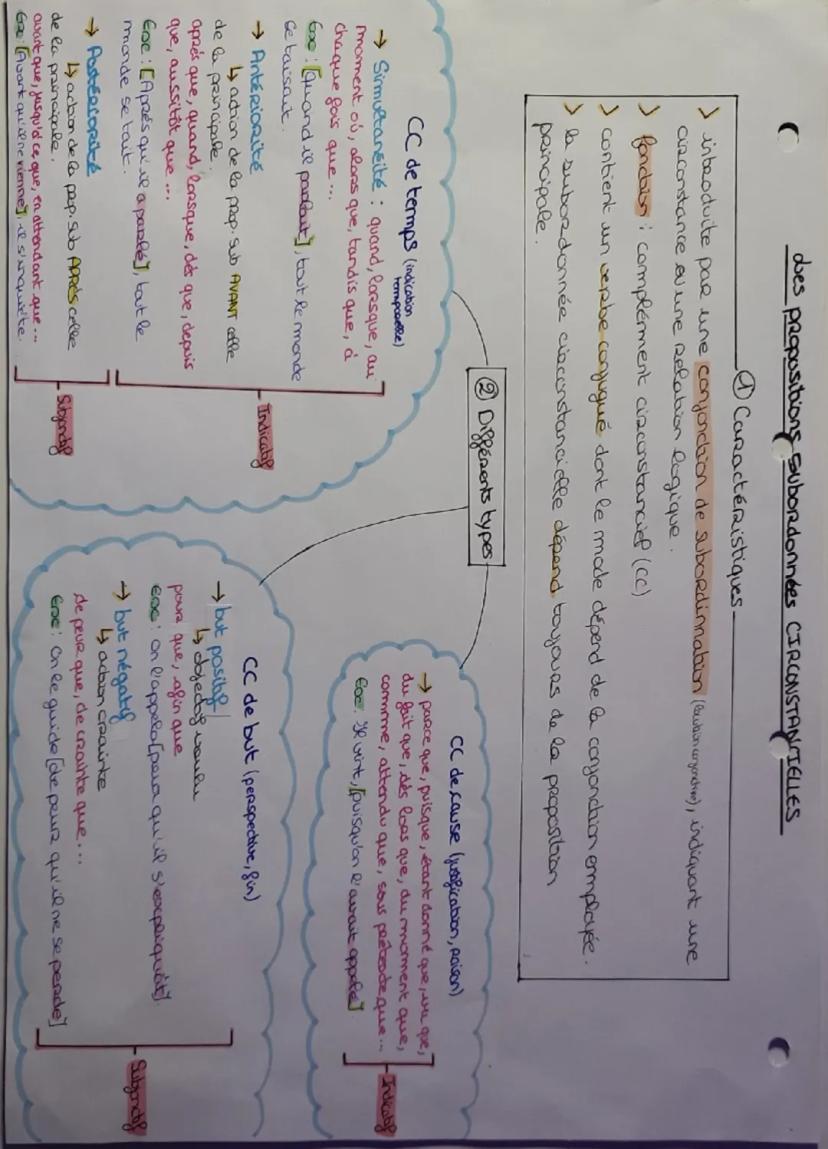 Les propositions subordonnées CIRCONSTANCIELLES
① Caractéristiques
> introduite par une conjonction de subordination (locution conjonctive), indiquant une
circonstance ou une relation logique.
> fonction : complément circonstanciel (CC)
> contient un verbe conjugué dont le mode dépend de la conjonction employée.
> la subordonnée circonstancielle dépend toujours de la proposition
principale.
② Différents types
CC de temps (indication
temporelle)
→ Simultanéité : quand, lorsque, au
moment où, alors que, tandis que, à
chaque fois que ...
Ex : [Quand il parlait], tout le monde
se taisait.
→ Antériorité
↳ action de la prop. sub AVANT celle
de la principale.
après que, quand, lorsque, dès que, depuis
que, aussitôt que ...
Ex : [Après qu'il a parlé], tout le
monde se tait.
Indicatif
→ Postériorité
↳ action de la prop. sub APRÈS celle
de la principale.
avant que, jusqu'à ce que, en attendant que ...
Ex : [Avant qu'il ne vienne], il s'inquiète.
Subjonctif
CC de cause (justification, raison)
→ parce que, puisque, étant donné que, vu que,
du fait que, dès lors que, du moment que,
comme, attendu que, sous prétexte que ...
Ex : Il vint, [puisqu'on l'avait appelé]
Indicatif
CC de but (perspective, fin)
→ but positif
↳ objectif voulu
pour que, afin que
Ex : On l'appela [pour qu'il s'expliquât].
→ but négatif
↳ action crainte
de peur que, de crainte que ...
Ex : On le guide [de peur qu'il ne se perde]
Subjonctif